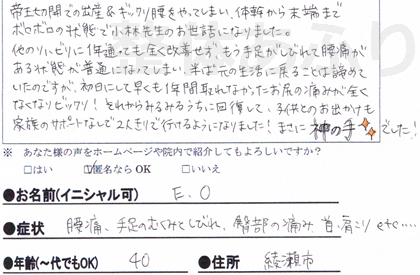 帝王切開での出産&ギックリ腰をやってしまい、体幹から末端まで
ボロボロの状態で小林先生のお世話になりました。
他のリハビリに1年通っても全く改善せず、もう手足がしびれて腰痛が
ある状態が普通になってしまい、半ば元の生活に戻ることは諦めて
いたのですが、初日にして早くも1年間取れなかったお尻の痛みが全く
なくなりビックリ!それからみるみるうちに回復して、子供とのお出かけも
家族のサポートなしで2人きりで行けるようになりました!まさに神の手でした!
※ あなた様の声をホームページや院内で紹介してもよろしいですか?
□はい ☑匿名なら OK □いいえ
●お名前(イニシャル可) E.O
●症状 腰痛、手足のむくみとしびれ、臀部の痛み、首・肩こり etc……
●年齢(~代でもOK) 40 ●住所 綾瀬市